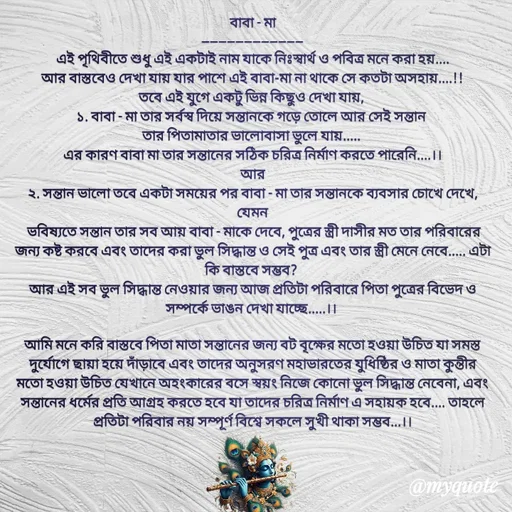 বাবা - মা
____________
এই পৃথিবীতে শুধু এই একটাই নাম যাকে নিঃস্বার্থ ও পবিত্র মনে করা হয়....
আর বাস্তবেও দেখা যায় যার পাশে এই বাবা-মা না থাকে সে কতটা অসহায়....!!
তবে এই যুগে একটু ভিন্ন কিছুও দেখা যায়,
১. বাবা - মা তার সর্বস্ব দিয়ে সন্তানকে গড়ে তোলে আর সেই সন্তান
তার পিতামাতার ভালোবাসা ভুলে যায়.....
এর কারণ বাবা মা তার সন্তানের সঠিক চরিত্র নির্মাণ করতে পারেনি....।।
আর
২. সন্তান ভালো তবে একটা সময়ের পর বাবা - মা তার সন্তানকে ব্যবসার চোখে দেখে,
যেমন
ভবিষ্যতে সন্তান তার সব আয় বাবা - মাকে দেবে, পুত্রের স্ত্রী দাসীর মত তার পরিবারের
জন্য কষ্ট করবে এবং তাদের করা ভুল সিদ্ধান্ত ও সেই পুত্র এবং তার স্ত্রী মেনে নেবে..... এটা
কি বাস্তবে সম্ভব?
আর এই সব ভুল সিদ্ধান্ত নেওয়ার জন্য আজ প্রতিটা পরিবারে পিতা পুত্রের বিভেদ ও
সম্পর্কে ভাঙন দেখা যাচ্ছে.....।।
আমি মনে করি বাস্তবে পিতা মাতা সন্তানের জন্য বট বৃক্ষের মতো হওয়া উচিত যা সমস্ত
দুর্যোগে ছায়া হয়ে দাঁড়াবে এবং তাদের অনুসরণ মহাভারতের যুধিষ্ঠির ও মাতা কুন্তীর
মতো হওয়া উচিত যেখানে অহংকারের বসে স্বয়ং নিজে কোনো ভুল সিদ্ধান্ত নেবেনা, এবং
সন্তানের ধর্মের প্রতি আগ্রহ করতে হবে যা তাদের চরিত্র নির্মাণ এ সহায়ক হবে.... তাহলে
প্রতিটা পরিবার নয় সম্পূর্ণ বিশ্বে সকলে সুখী থাকা সম্ভব...।।
@myquote